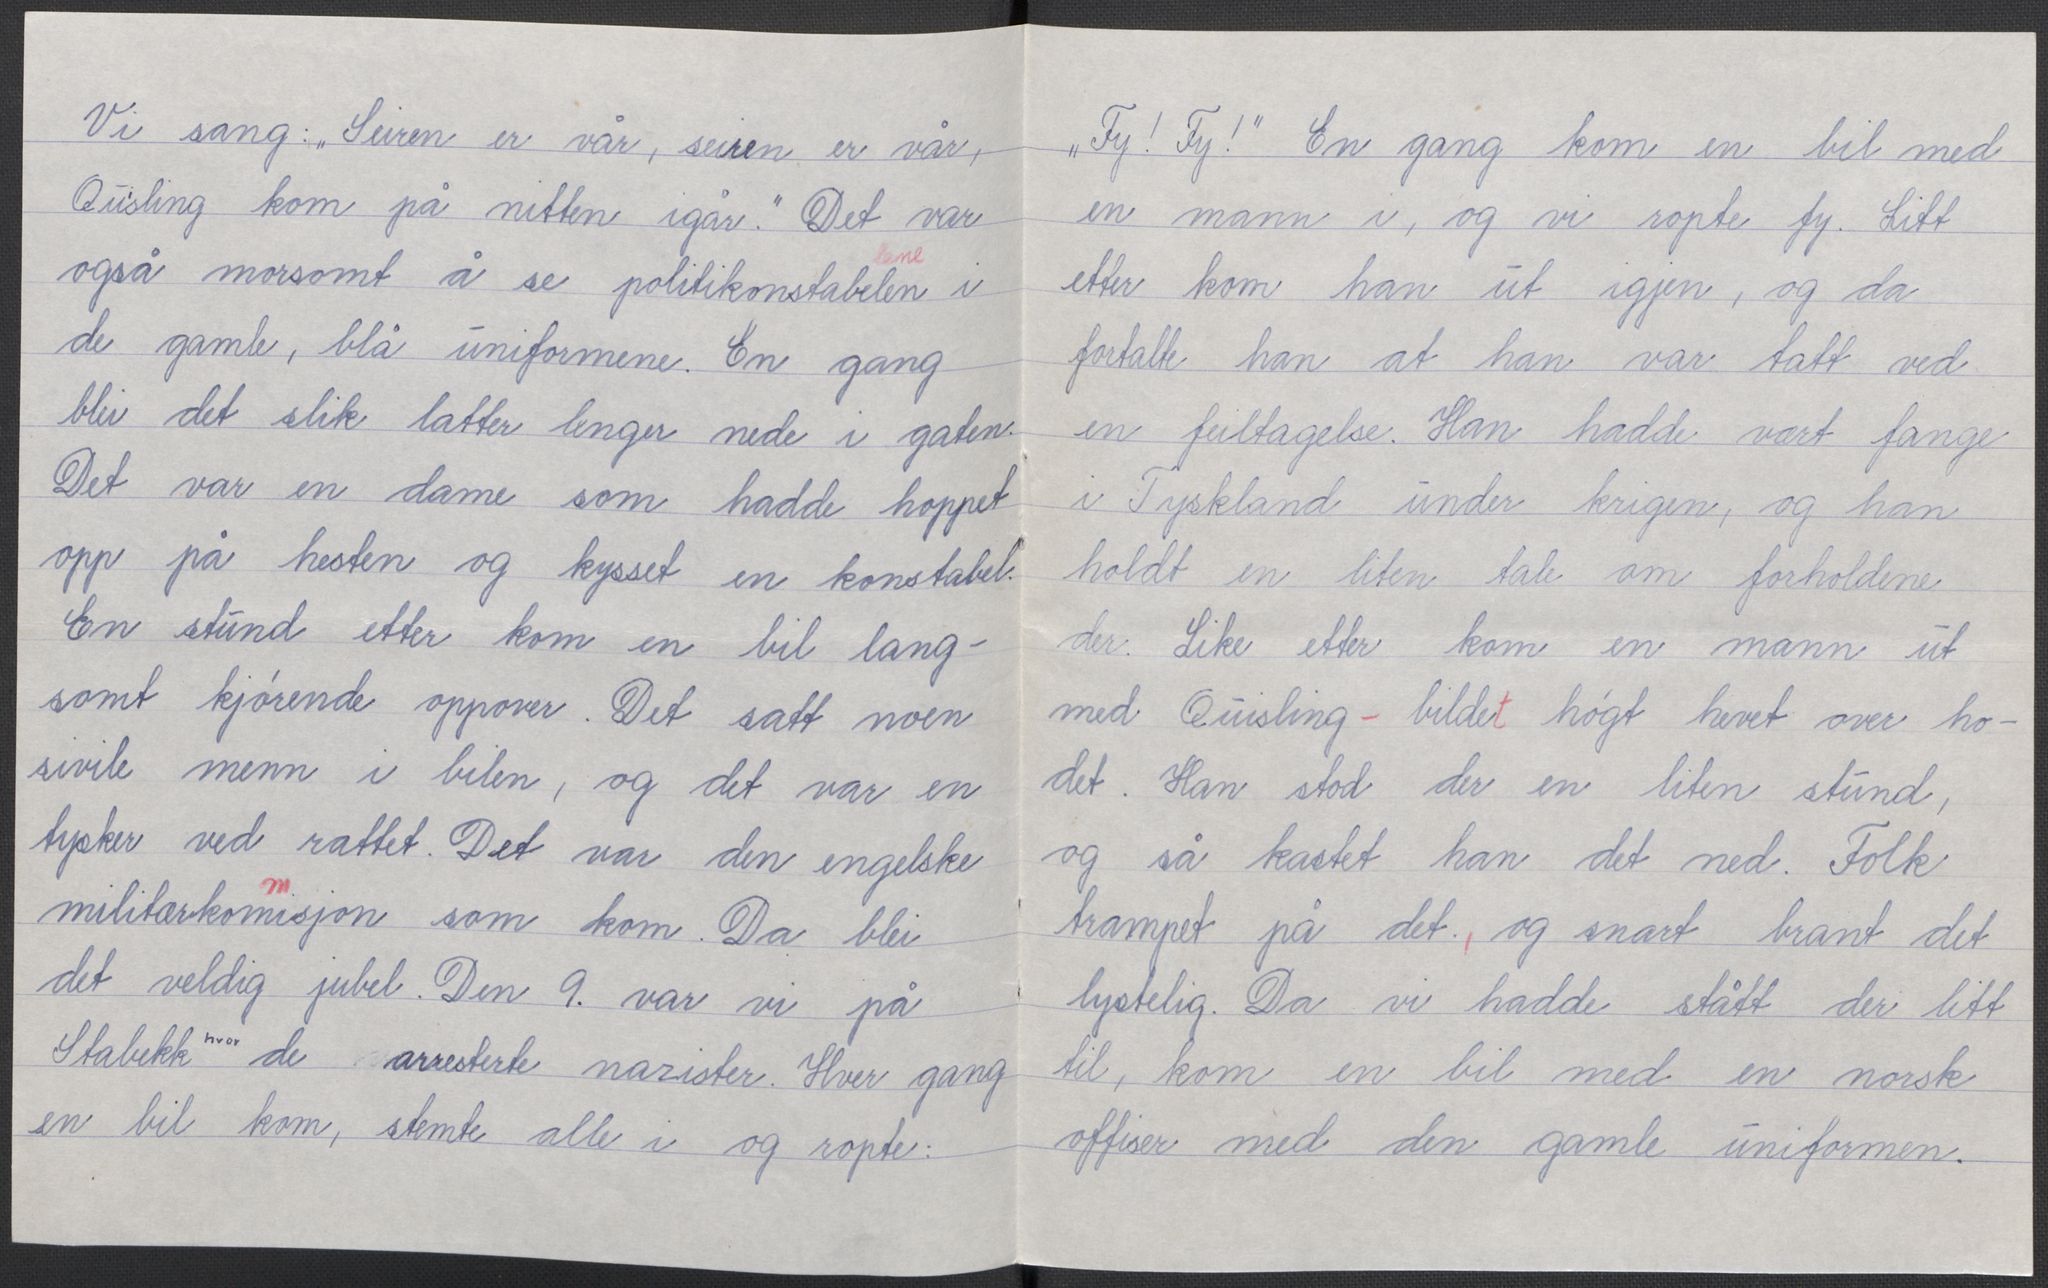 Vi sang: „Seiren er vår, seiren er vår,
Quisling kom på nitten igår." Det var
også morsomt å se politikonstabelen i
lene
de gamle, blå uniformene. En gang
blei det slik latter lenger nede i gaten.
Det var en dame som hadde hoppet
opp på hesten og kysset en konstabel.
En stund etter kom en bil lang-
somt kjørende oppover. Det satt noen
sivile menn i bilen, og det var en
tysker ved rattet. Det var den engelske
m
militærkomisjon som kom. Da blei
det veldig jubel. Den 9. var vi på
Stabekk hvor de arresterte nazister. Hver gang
en bil kom, stemte alle i og ropte:
„Fy! Fy!" En gang kom en bil med
en mann i, og vi ropte fy. Litt
etter kom han ut igjen, og da
fortalte han at han var tatt ved
en feiltagelse. Han hadde vært fange
i Tyskland under krigen, og han
holdt en liten tale om forholdene
der. Like etter kom en mann ut
med Quisling-bildet høgt hevet over ho-
det. Han stod der en liten stund,
og så kastet han det ned. Folk
trampet på det., og snart brant det
lystelig. Da vi hadde stått der litt
til, kom en bil med en norsk
offiser med den gamle uniformen.